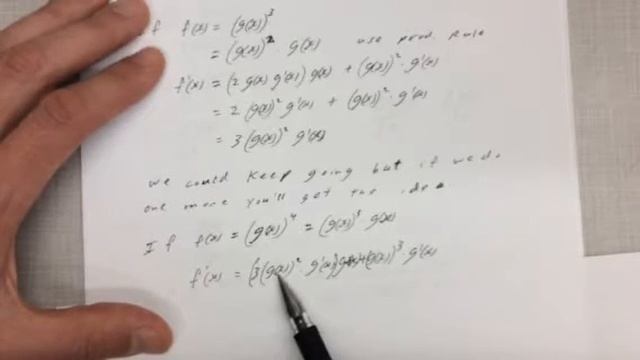 If f(x) = (g(x))³
= (g(x))² g(x) use prod. Rule
f'(x) = (2 g(x) g'(x)) g(x) + (g(x))² · g'(x)
= 2 (g(x))² g'(x) + (g(x))² · g'(x)
= 3 (g(x))² g'(x)
we could keep going but if we do
one more you'll get the idea
If f(x) = (g(x))⁴ = (g(x))³ g(x)
f'(x) = (3(g(x))² · g'(x)) g(x) + (g(x))³ · g'(x)